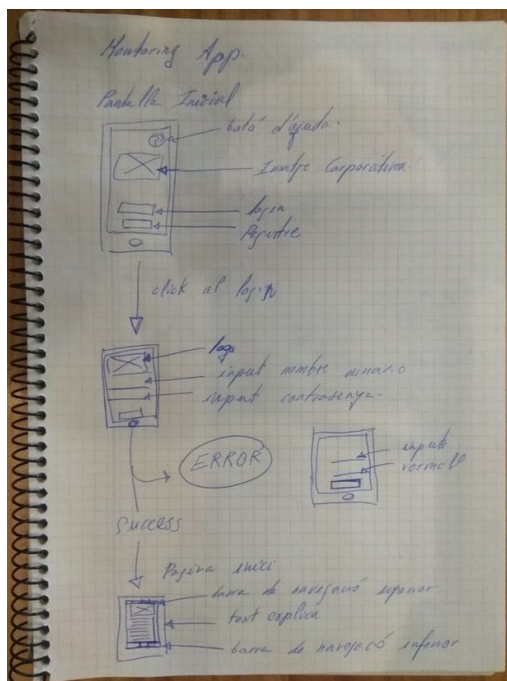 Mentoring App.
Pantalla Inicial
botó d'ajuda.
Imatge Corporativa
login
Registre
click al login
logo
input nombre usuario
input contrasenya.
ERROR
inputs
vermell
Success
Pagina inici
barra de navegació superior
text explica
barra de navegació inferior